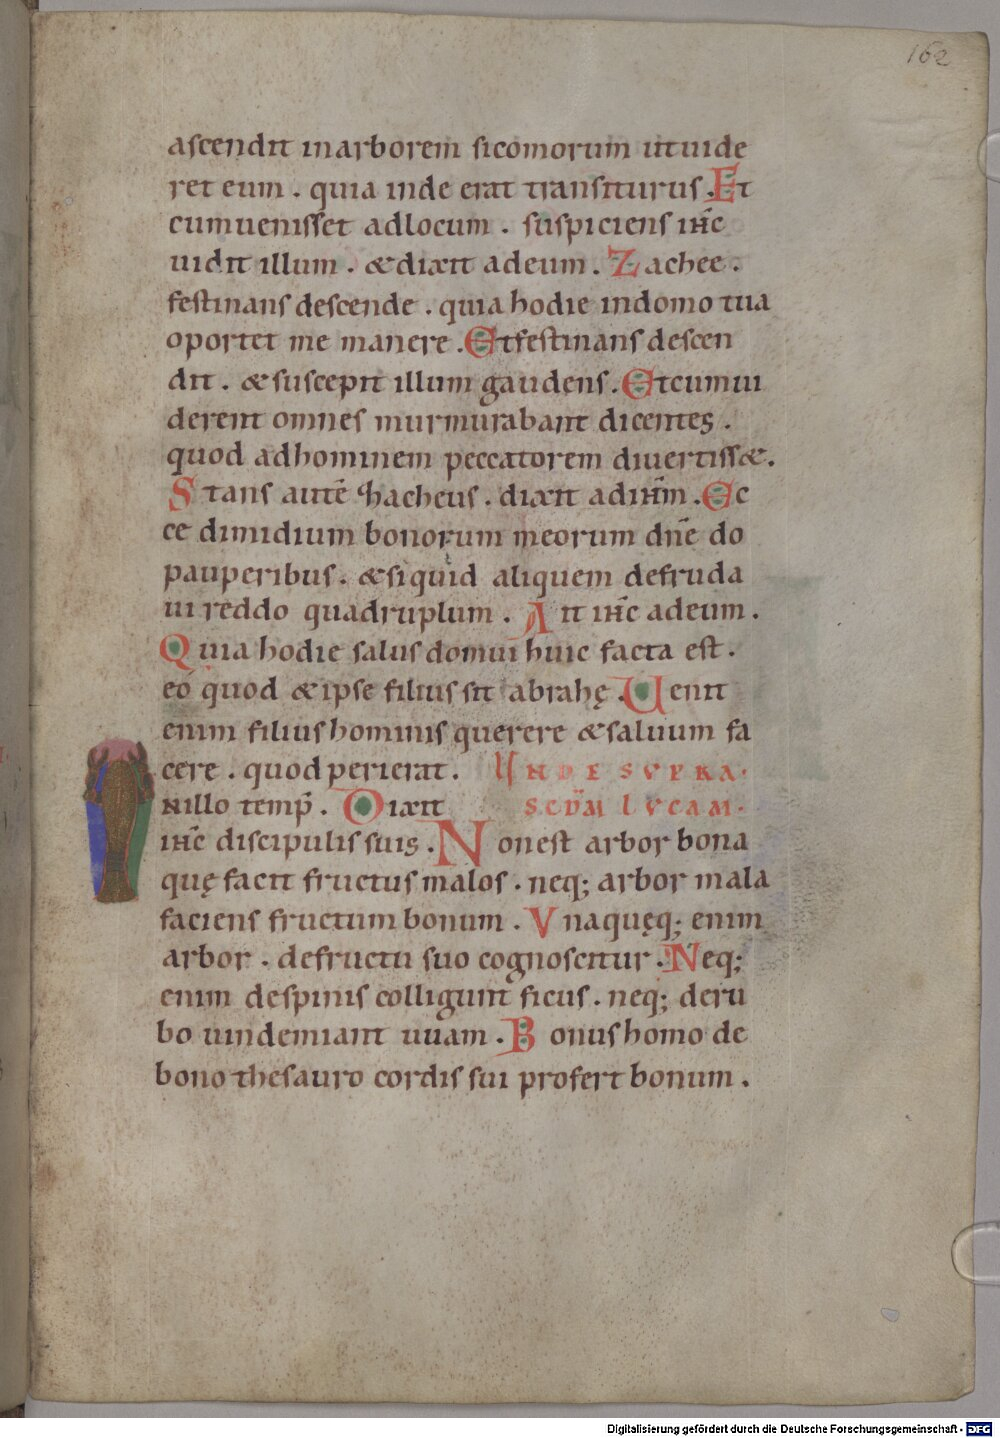 162
ascendit inarborem sicomorum utuide
ret eum . quia inde erat transiturus . Et
cumuenisset adlocum . suspiciens ihc̄
uidit illum . &dixit adeum . Zachee .
festinans descende . quia hodie indomo tua
oportet me manere . Etfestinans descen
dit . &suscepit illum gaudens . Etcumui
derent omnes murmurabant dicentes .
quod adhominem peccatorem diuertiss& .
Stans autē Zhacheus . dixit adihm̄ . Ec
ce dimidium bonorum meorum dnē do
pauperibus . &siquid aliquem defruda
ui reddo quadruplum . Ait ihc̄ adeum .
Quia hodie salus domui huic facta est .
eo quod &ipse filius sit abrahę . Uenit
enim filius hominis querere &saluum fa
cere . quod perierat . UNDE SUPRA .
INillo temp̄ . Dixit SCD̄M LUCAM .
ihc̄ discipulis suis . Nonest arbor bona
quę facit fructus malos . neq; arbor mala
faciens fructum bonum . Vnaquęq; enim
arbor . defructu suo cognoscitur . Neq;
enim despinis colligunt ficus . neq; deru
bo uindemiant uuam . Bonus homo de
bono thesauro cordis sui profert bonum .
Digitalisierung gefördert durch die Deutsche Forschungsgemeinschaft - DFG